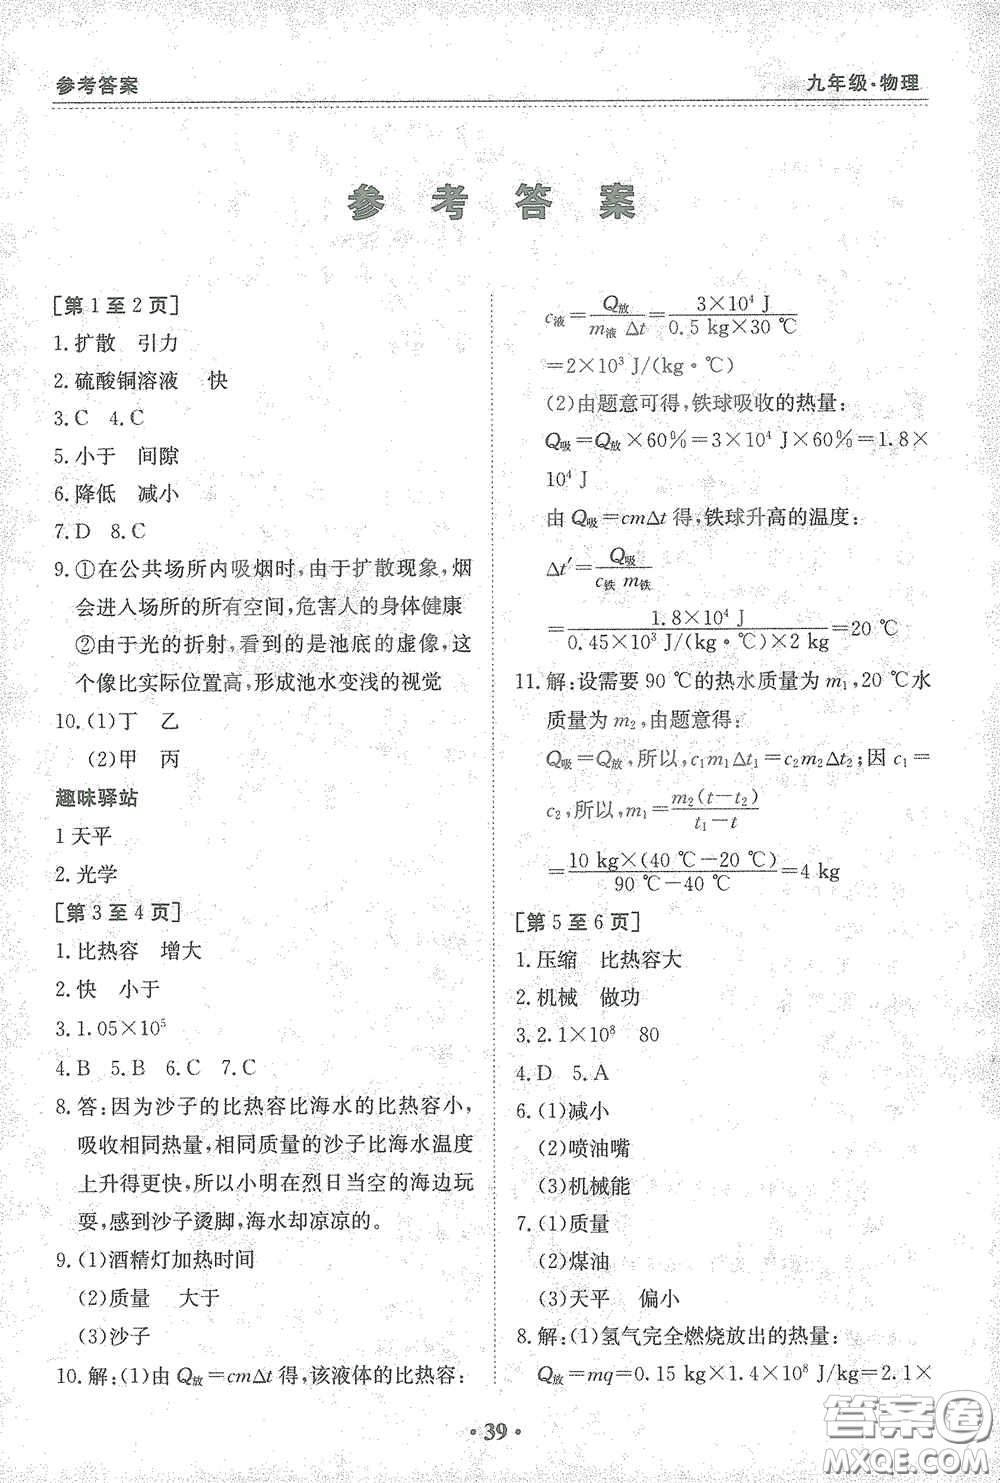 参考答案
九年级·物理
参 考 答 案
[第1至2页]
1.扩散 引力
2.硫酸铜溶液 快
3.C 4.C
5.小于 间隙
6.降低 减小
7.D 8.C
9.①在公共场所内吸烟时,由于扩散现象,烟
会进入场所的所有空间,危害人的身体健康
②由于光的折射,看到的是池底的虚像,这
个像比实际位置高,形成池水变浅的视觉
10.(1)丁 乙
(2)甲 丙
趣味驿站
1 天平
2.光学
[第3至4页]
1.比热容 增大
2.快 小于
3.1.05×10⁵
4.B 5.B 6.C 7.C
8.答:因为沙子的比热容比海水的比热容小,
吸收相同热量,相同质量的沙子比海水温度
上升得更快,所以小明在烈日当空的海边玩
耍,感到沙子烫脚,海水却凉凉的。
9.(1)酒精灯加热时间
(2)质量 大于
(3)沙子
10.解:(1)由Q放=cmΔt得,该液体的比热容:
c液=Q放/(m液 Δt)=3×10⁴ J/(0.5 kg×30 ℃)
=2×10³ J/(kg·℃)
(2)由题意可得,铁球吸收的热量:
Q吸=Q放×60%=3×10⁴ J×60%=1.8×
10⁴ J
由Q吸=cmΔt得,铁球升高的温度:
Δt′=Q吸/(c铁 m铁)
=1.8×10⁴ J/(0.45×10³ J/(kg·℃)×2 kg)=20 ℃
11.解:设需要90 ℃的热水质量为m₁,20 ℃水
质量为m₂,由题意得:
Q吸=Q放,所以,c₁m₁Δt₁=c₂m₂Δt₂;因c₁=
c₂,所以,m₁=m₂(t-t₂)/(t₁-t)
=10 kg×(40 ℃-20 ℃)/(90 ℃-40 ℃)=4 kg
[第5至6页]
1.压缩 比热容大
2.机械 做功
3.2.1×10⁸ 80
4.D 5.A
6.(1)减小
(2)喷油嘴
(3)机械能
7.(1)质量
(2)煤油
(3)天平 偏小
8.解:(1)氢气完全燃烧放出的热量:
Q放=mq=0.15 kg×1.4×10⁸ J/kg=2.1×
·39·
答案圈
MXQE.COM